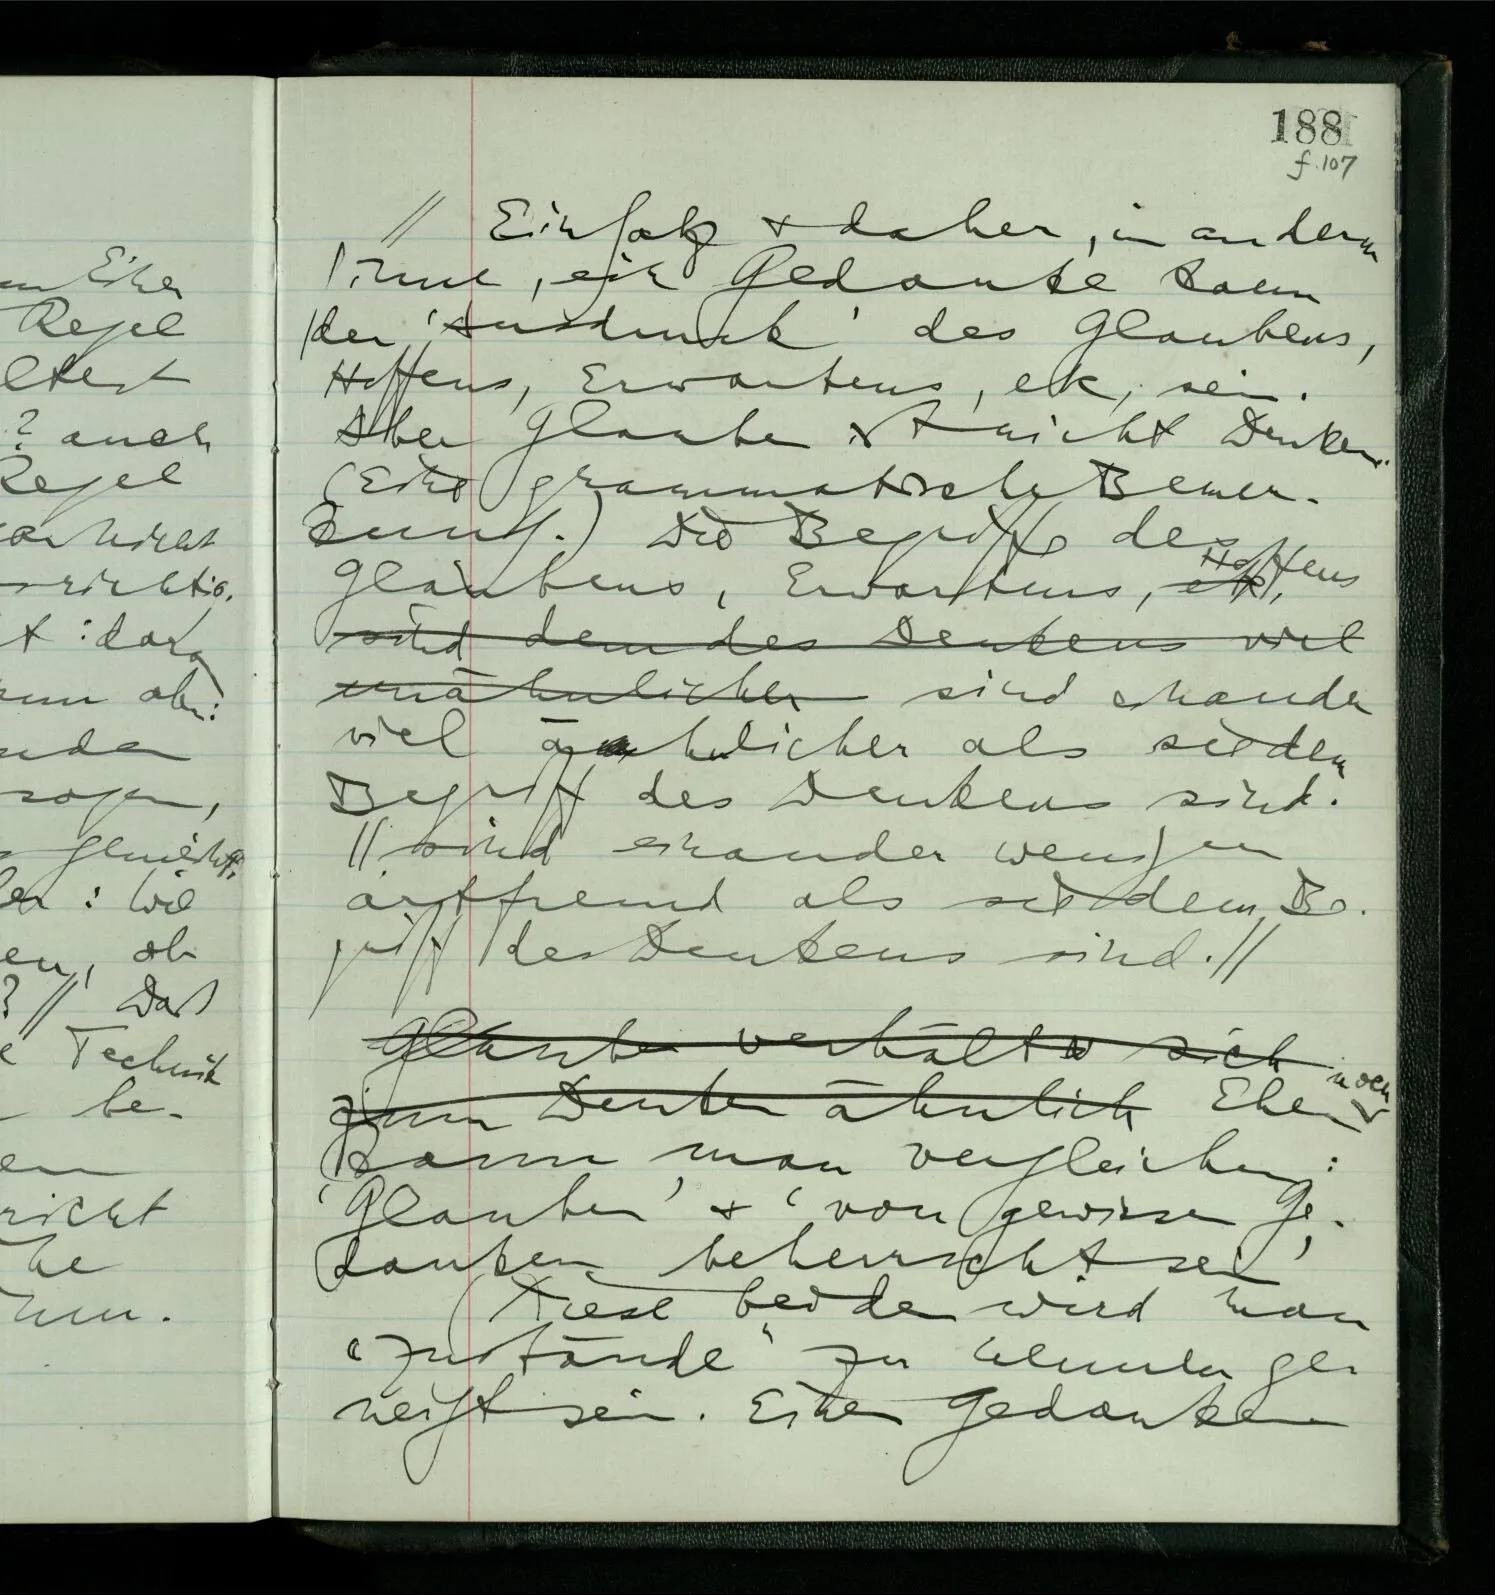 188
f. 107
// Ein Satz & daher, in anderm
Sinne, ein Gedanke kann
der ‘Ausdruck’ des Glaubens,
Hoffens, Erwartens, etc, sein.
Aber Glauben ist nicht Denken.
(Eine grammatische Bemer-
kung.) Die Begriffe des
Glaubens, Erwartens, etc, Hoffens
sind dem des Denkens viel
unähnlicher sind einander
viel ähnlicher als sie dem
Begriff des Denkens sind.
// sind einander weniger
artfremd als sie dem Be-
griff des Denkens sind. //
Glauben verhält sich
zum Denken ähnlich Eher noch
kann man vergleichen:
‘Glauben’ & ‘von gewissen Ge-
danken beherrscht sein’
Diese beiden wird man
“Zustände” zu nennen ge-
neigt sein. Einen Gedanken
Einer
Regel
? auch
Regel
nicht
richtig.
: dass
sagen,
: Wie
, ob
? // Das
Technik
be-
nicht